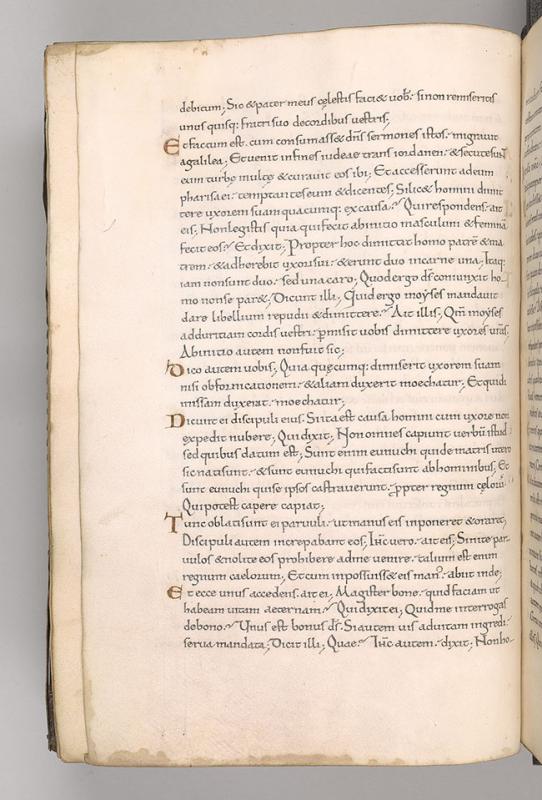 debitum; Sic & pater meus cęlestis faci& uob; si non remiseritis
unus quisq; fratri suo de cordibus uestris;
Et factum est. cum consumass& dns sermones istos. migrauit
a galilea; Et uenit in fines iudeae trans iordanen. & secutę sunt
eum turbę multę & curauit eos ibi; Et accesserunt ad eum
pharisaei. temptantes eum & dicentes; Si lic& homini dimit
tere uxorem suam quacumq; ex causa? Qui respondens. ait
eis; Non legistis quia qui fecit ab initio masculum & feminā
fecit eos? Et dixit; Propter hoc dimittat homo patrē & ma
trem. & adherebit uxori suę. & erunt duo in carne una; Itaq;
iam non sunt duo. sed una caro; Quod ergo ds coniunxit ho
mo non separ&; Dicunt illi; Quid ergo moyses mandauit
dare libellum repudii & dimittere? Ait illis; Qm moyses
ad duritiam cordis uestri. pmisit uobis dimittere uxores uras;
Ab initio autem non fuit sic;
Dico autem uobis; Quia quęcumq; dimiserit uxorem suam
nisi ob fornicationem. & aliam duxerit moechatur; Et qui di
missam duxerit. moechatur;
Dicunt ei discipuli eius. Si ita est causa homini cum uxore non
expedit nubere; Qui dixit; Non omnes capiunt uerbū istud
sed quibus datum est; Sunt enim eunuchi qui de matris utero
sic nati sunt. & sunt eunuchi qui facti sunt ab hominibus; Et
sunt eunuchi qui se ipsos castrauerunt. ppter regnum cęlorū.
Qui potest capere capiat;
Tunc oblati sunt ei paruuli. ut manus eis inponeret & orar&;
Discipuli autem increpabant eos; Ihc uero. ait eis; Sinite par
uulos & nolite eos prohibere ad me uenire. talium est enim
regnum caelorum; Et cum imposuiss& eis man?. abiit inde;
Et ecce unus accedens. ait ei; Magister bone. quid faciam ut
habeam uitam aeternam? Qui dixit ei; Quid me interrogas
de bono? Unus est bonus ds. Si autem uis ad uitam ingredi.
serua mandata; Dicit illi; Quae? Ihc autem. dixit; Non ho